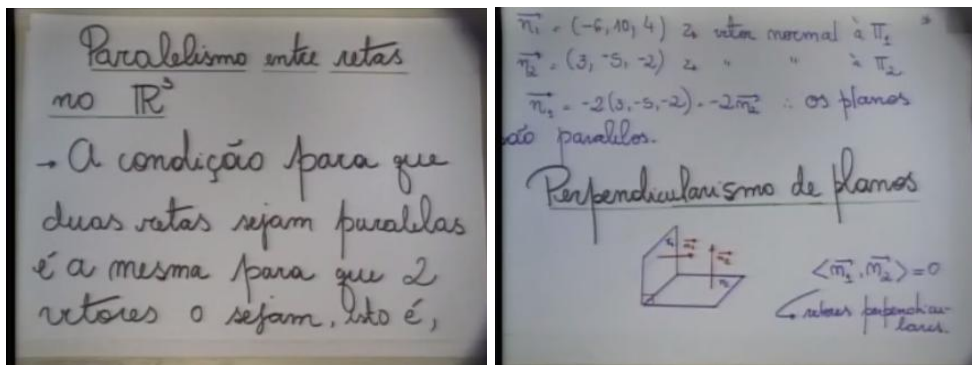 Paralelismo entre retas
no ℝ³
→ A condição para que
duas retas sejam paralelas
é a mesma para que 2
vetores o sejam, isto é,
n₁ = (-6, 10, 4) → vetor normal à π₁
n₂ = (3, -5, -2) → " " à π₂
n₁ = -2(3, -5, -2) = -2n₂ ∴ os planos
são paralelos.
Perpendicularismo de planos
π₁ n₁ n₂
π₂
<n₁, n₂> = 0
↳ vetores perpendicu-
lares.